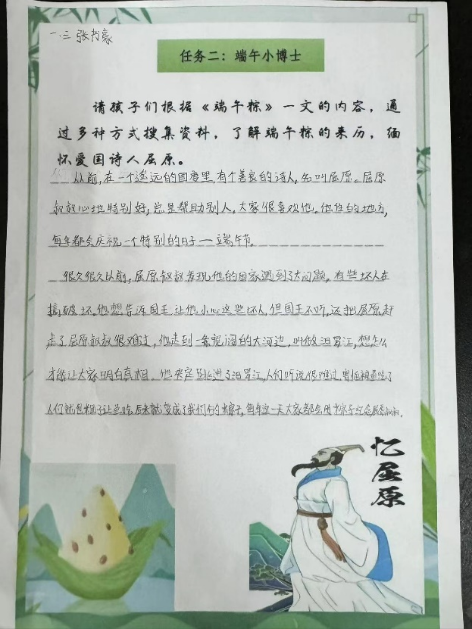 一.三 张书豪
任务二：端午小博士
请孩子们根据《端午粽》一文的内容，通
过多种方式搜集资料，了解端午粽的来历，缅
怀爱国诗人屈原。
从前，在一个遥远的国度里，有个善良的诗人，名叫屈原。屈原
叔叔心地特别好，总是帮助别人，大家很喜欢他。他住的地方，
每年都会庆祝一个特别的日子一端午节。
很久很久以前，屈原叔叔发现他的国家遇到了大问题，有些坏人在
搞破坏。他想告诉国王，让他小心这些坏人，但国王不听，还把屈原赶
走了屈原叔叔很难过，他走到一条说酒的大河边，叫做汨罗江，想怎么
才能让大家明白真相。他决定跳进了汨罗江，人们听说很难过
人们就把粽子让鱼吃，后来就变成了我们的粽子，每年这一天大家都会用
忆屈原